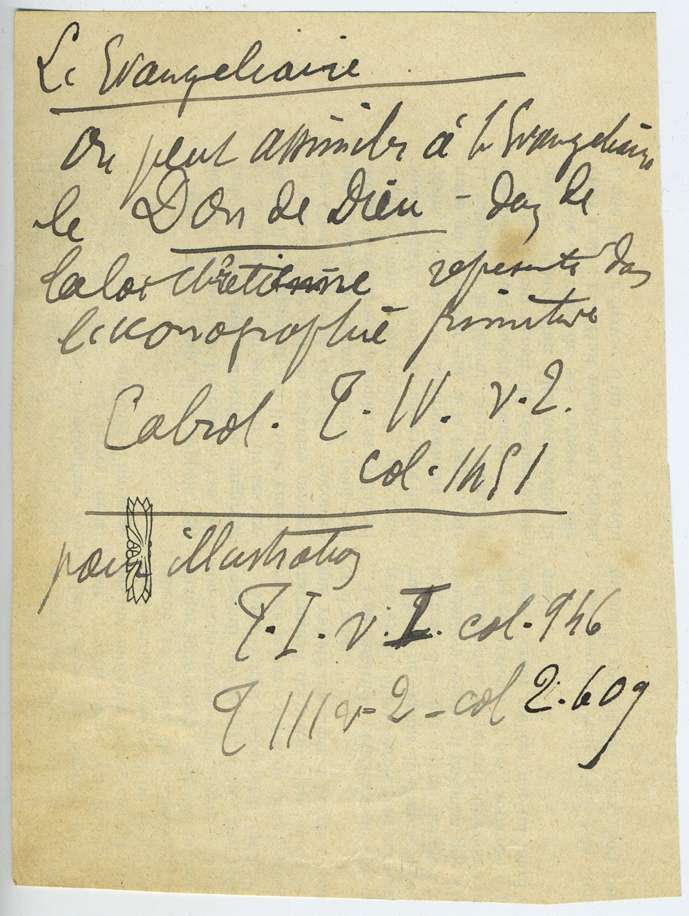 Le Evangeliaire
On peut assimiler à le Evangeliaire
le Don de Dieu - dans le
chrétienne represente dans
l'iconographie primitive
Cabrol. T. IV. v. 2.
col. 1451
pour illustration
T. I. v. I. col. 946
T III v-2 - col 2.609